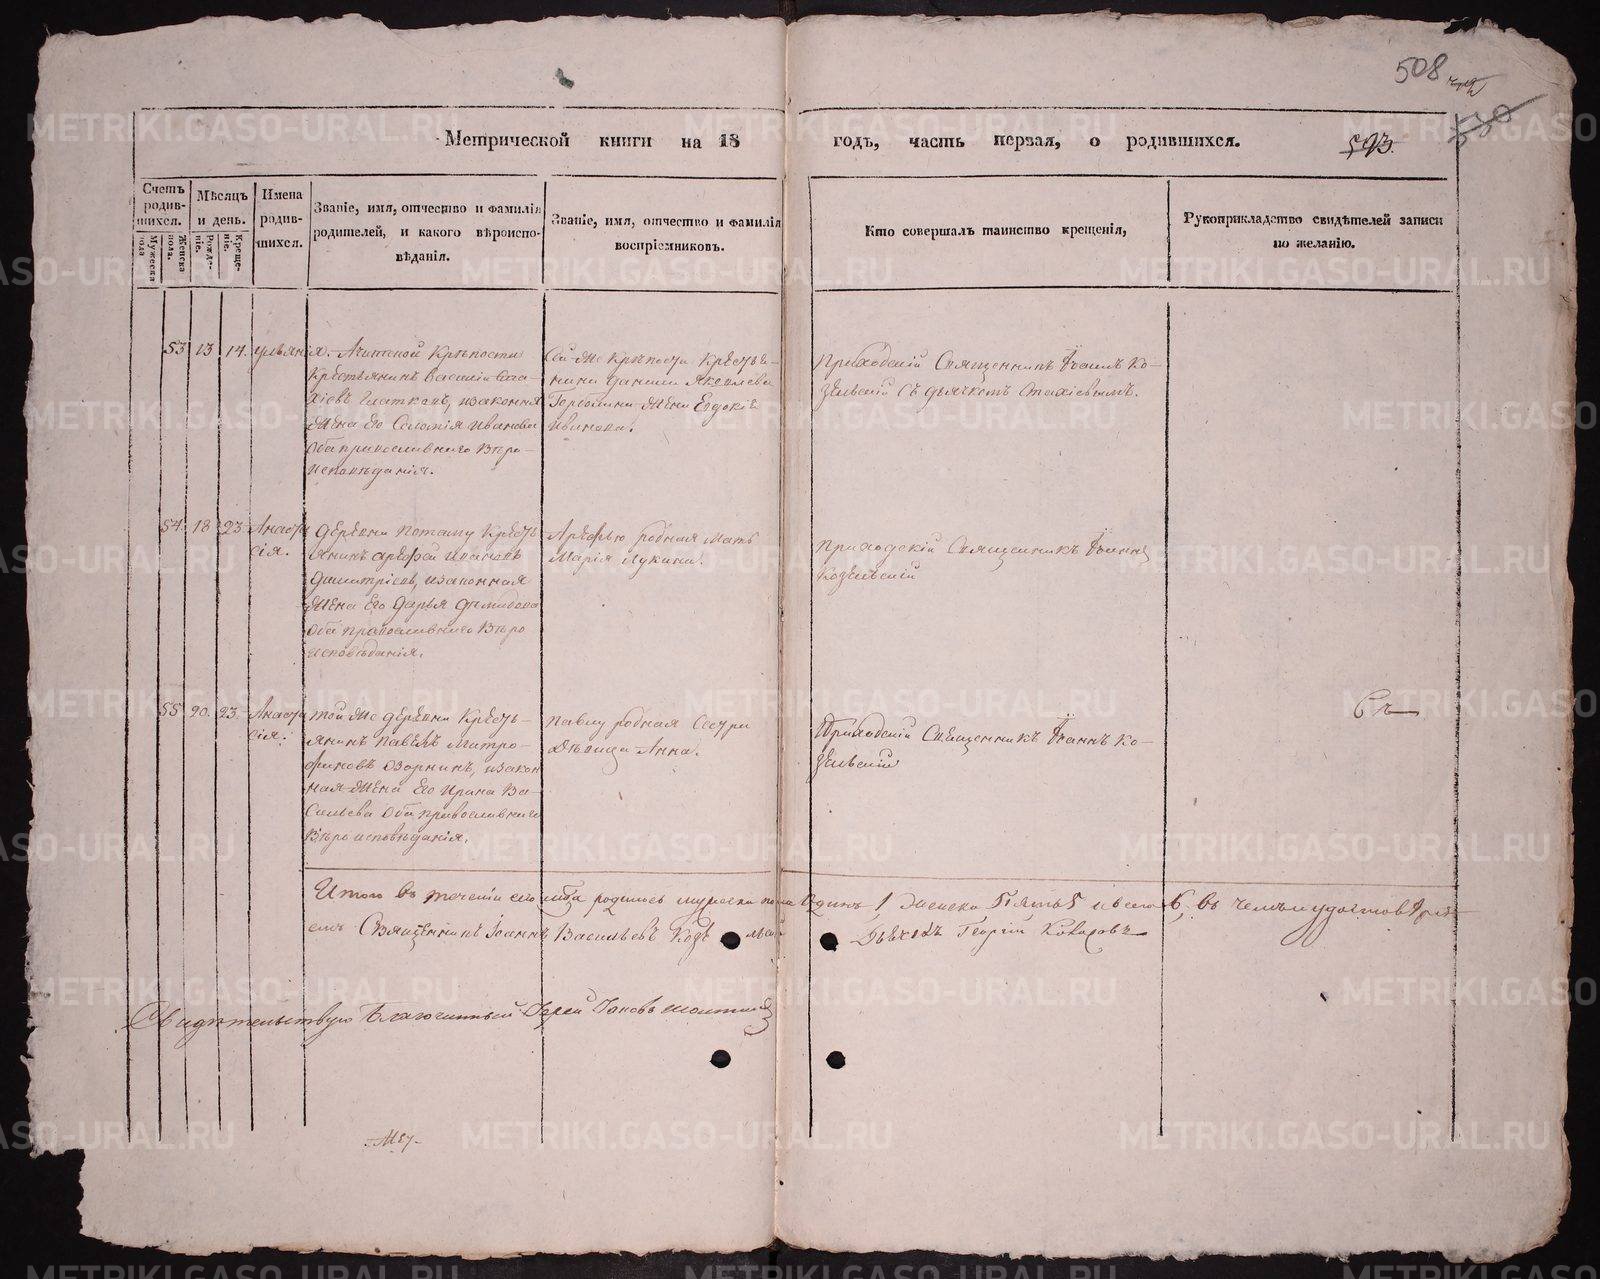 508
593.
Метрической книги на 18 годъ, часть первая, о родившихся.
Счетъ родив-шихся.
Мужеска пола
Женска пола.
Мѣсяцъ и день.
Рожде-ніе.
Креще-ніе.
Имена родив-шихся.
Званіе, имя, отчество и фамилія
родителей, и какого вѣроиспо-
вѣданія.
Званіе, имя, отчество и фамилія
воспріемниковъ.
Кто совершалъ таинство крещенія,
Рукоприкладство свидѣтелей записи
по желанію.
53 13 14. Ульянія.
Ачитской Крѣпости
Крестьянинъ Василій
законная
жена его Соломія Иванова
Оба православнаго Вѣро-
исповѣданія.
Той же крѣпости Крестья-
нина
жена Евдокія
Иванова.
Приходскій Священникъ Іоаннъ Ко-
зельскій съ дьячкомъ Стахіевымъ.
54. 18 23 Анаста
сія.
деревни Поташу Кресть
янинъ Арефей Ивановъ
Димитріевъ, и законная
жена Его Дарья Демидова
Оба православнаго Вѣро
исповѣданія.
Арефью родная мать
Марія Лукина.
Приходскій Священникъ Іоаннъ
Козельскій
55 20. 23. Анаста
сія.
той же деревни Кресть-
янинъ Павелъ Митро-
фановъ Озорнинъ, и закон
ная жена Его Ирина Ва-
сильева Оба православнаго
Вѣроисповѣданія.
Павлу родная Сестра
Дѣвица Анна.
Приходскій Священникъ Іоаннъ Ко-
зельскій
Итого въ теченіи сего родилось мужеска пола Одинъ 1, женска Пять 5 и всего 6, въ чемъ и удостовѣря
емъ Священникъ Іоаннъ Васильевъ Козельскій
Дьячекъ Георгій
Свидѣтельствую Благочинный Іерей Іаковъ
METRIKI.GASO-URAL.RU